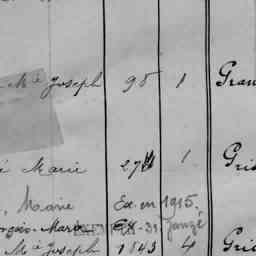 Mie Joseph 98 1 Gran
é Marie 27 1 Gris
Marie Ex. en 1915.
Marie -31 Janzé
Mie Joseph 1843 4 Gri